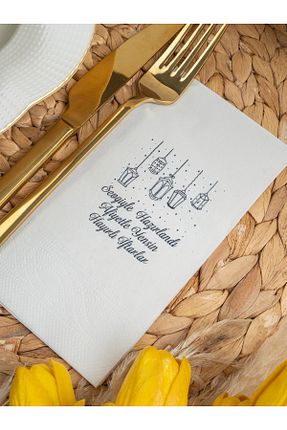 Sevgiyle Hazırlandı
Afiyetle Yensin
Hayırlı İftarlar